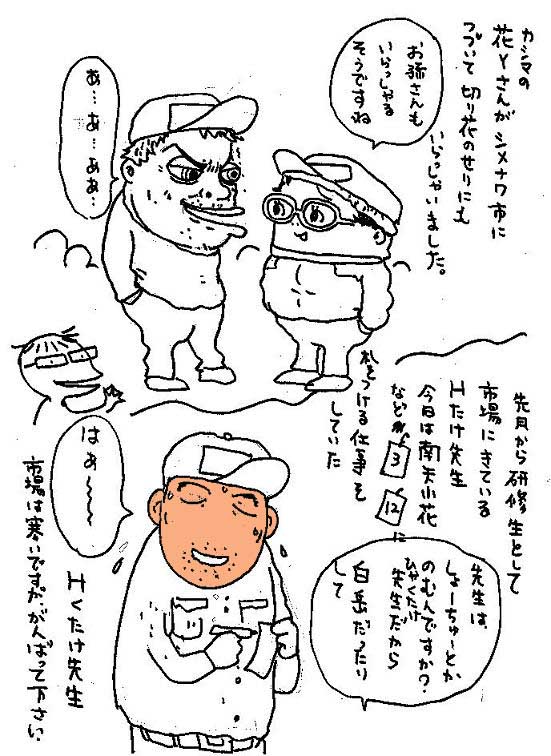 カシマの
花Yさんが シメナワ市に
つづいて 切り花のせりにも
いらっしゃいました。
お孫さんも
いらっしゃる
そうですね
あ…あ…ああ…
先月から研修生として
市場にきている
Hたけ先生
今日は南天小花
などが 3 12 に
札をつける仕事を
していた
先生は
しょーちゅーとか
のむんですか?
ひゃくたけ
先生だから
白岳だったり
して
はぁ〜〜〜
Hくたけ先生
市場は寒いですが、がんばって下さい